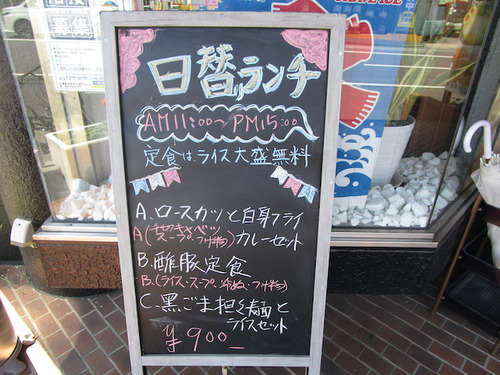 日替ランチ
AM11:00〜PM15:00
定食はライス大盛無料
A.ロースカツと白身フライ
A(千切キャベツ
スープ、つけ物)カレーセット
B.酢豚定食
B.(ライス・スープ・冷奴・つけ物)
C.黒ごま担々麺と
ライスセット
¥900_